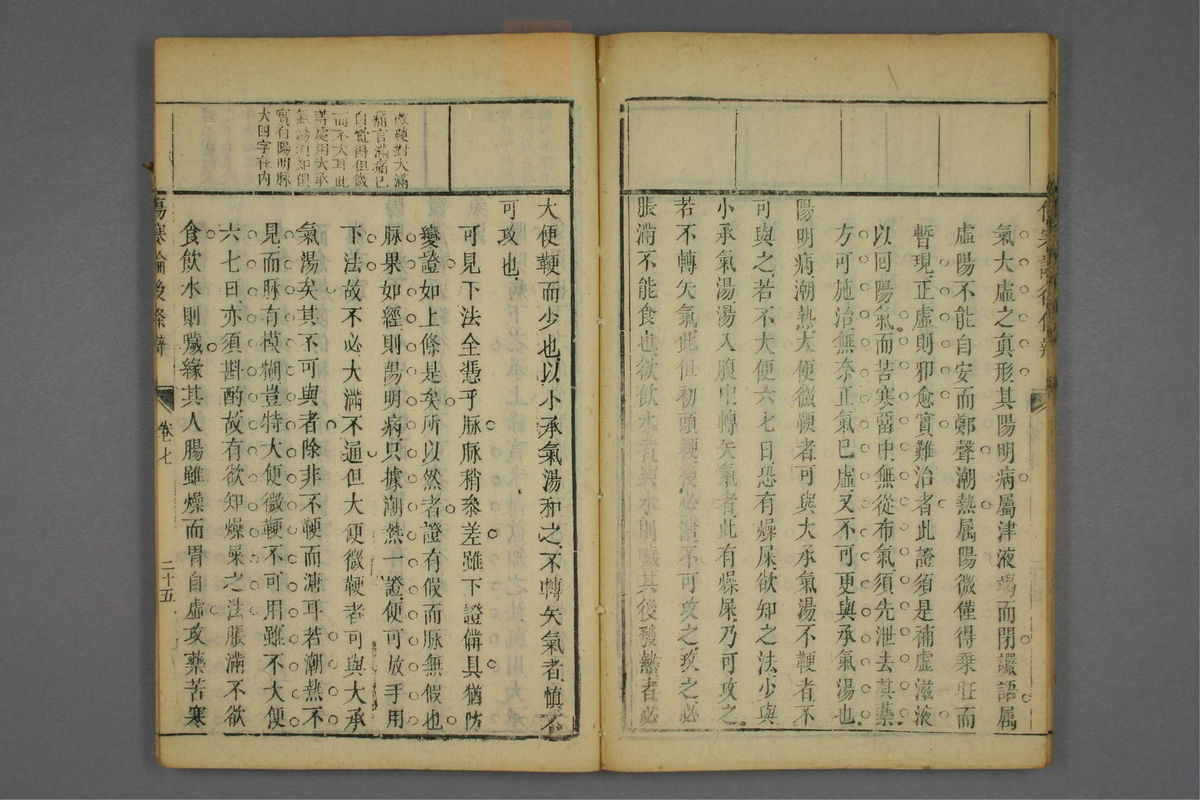 氣大虛之真形其陽明病屬津液竭而閉讝語属
虛陽不能自安而鄭聲潮熱属陽微僅得乘旺而
暫現正虛則邪愈實難治者此證須是補虛滋液
以回陽氣而苦寒留中無從布氣須先泄去其藥
方可施治無奈正氣已虛又不可更與承氣湯也
陽明病潮熱大便微鞕者可與大承氣湯不鞕者不
可與之若不大便六七日恐有燥屎欲知之法少與
小承氣湯湯入腹中轉矢氣者此有燥屎乃可攻之
若不轉矢氣此但初頭鞕後必溏不可攻之攻之必
脹滿不能食也欲飲水者與水則噦其後發熱者必
大便鞕而少也以小承氣湯和之不轉矢氣者慎不
可攻也
可見下法全憑乎脉脉稍參差雖下證備具猶防
變證如上條是矣所以然者證有假而脉無假也
脉果如經則陽明病只據潮熱一證便可放手用
下法故不必大滿不通但大便微鞕者可與大承
氣湯矣其不可與者除非不鞕而溏耳若潮熱不
見而脉有模糊豈特大便微鞕不可用雖不大便
六七日亦須斟酌故有欲知燥屎之法脹滿不欲
食飲水則噦緣其人腸雖燥而胃自虛攻藥苦寒
微鞕對大滿
痛言滿痛已
自覺得但微
而不大耳此
等處用大承
無論須知俱
實有陽明脉
大四字在內
傷寒論後條辨
卷七
二十五